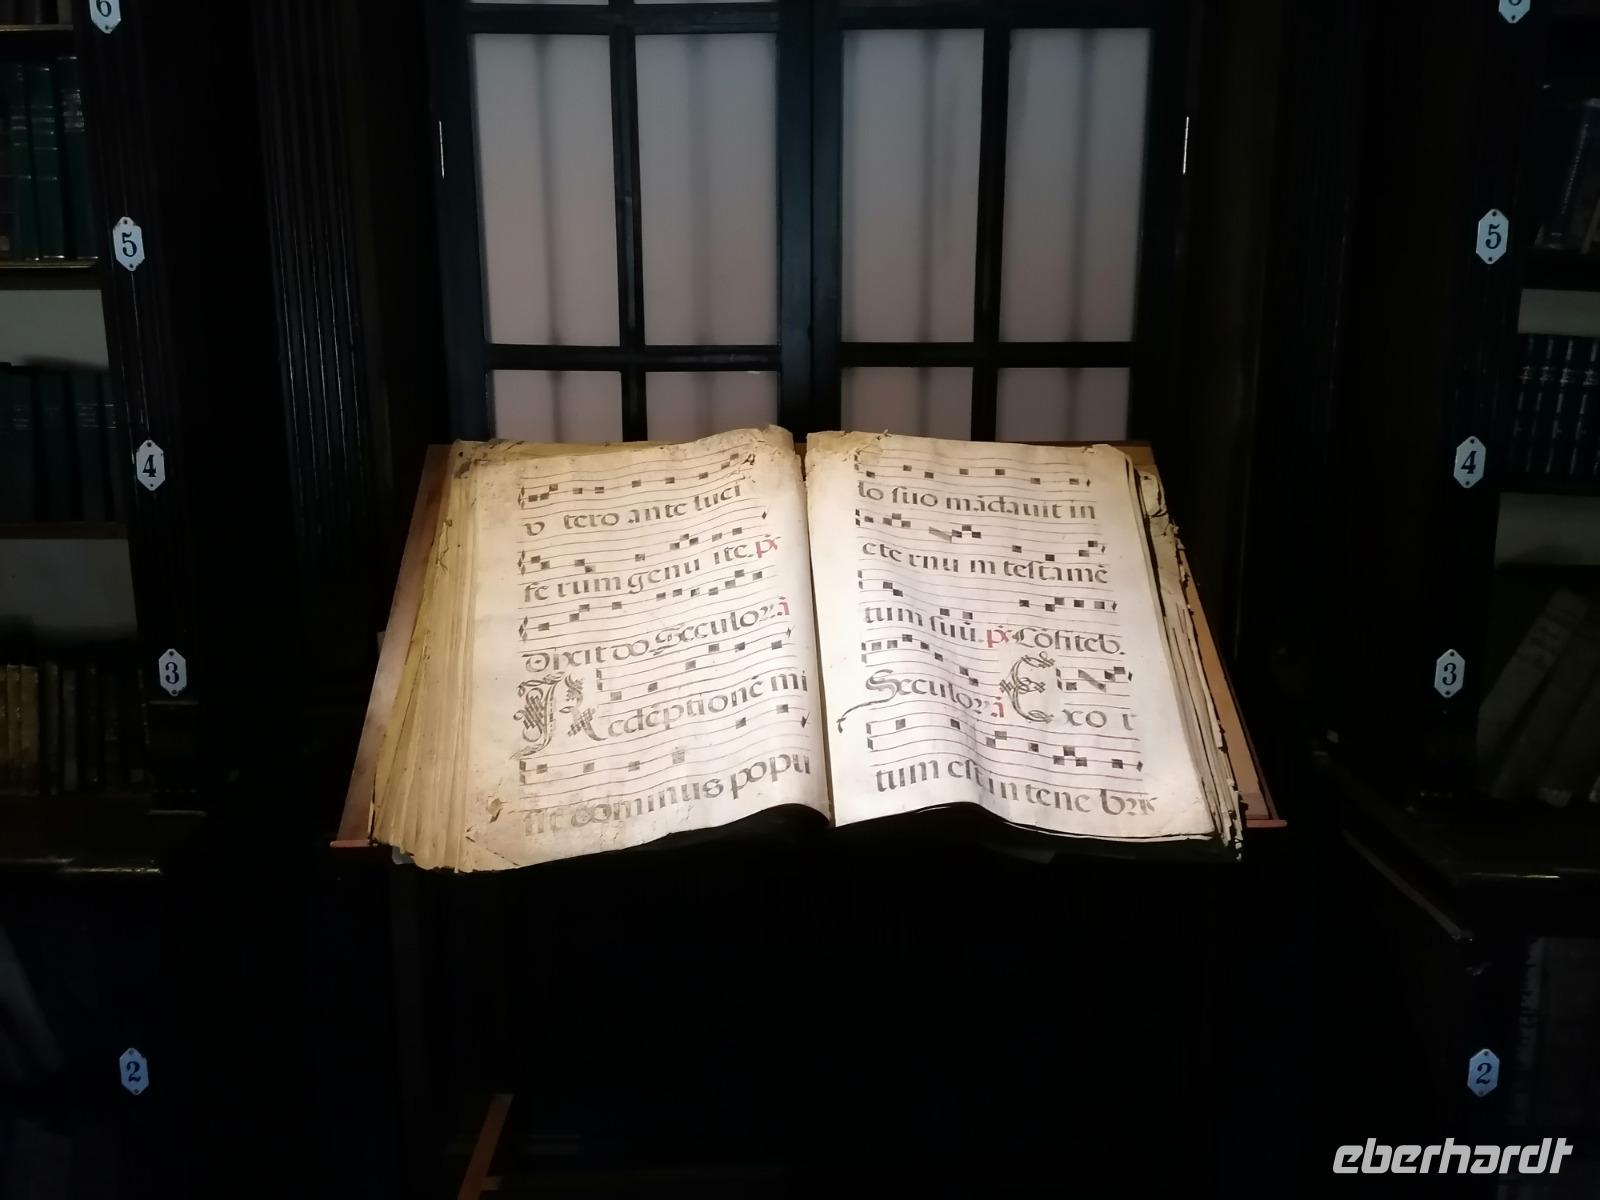 6
5
4
3
2
v tero ante luci
fe rum genu i te. ps
Dixit do. Seculoꝝ. a
Redēptionē mi
sit dominus popu
lo suo mādavit in
ete rnu m testamē
tum suū. ps Cōfiteb.
Seculoꝝ. a Exo r
tum est in tene bris
5
4
3
2
eberhardt